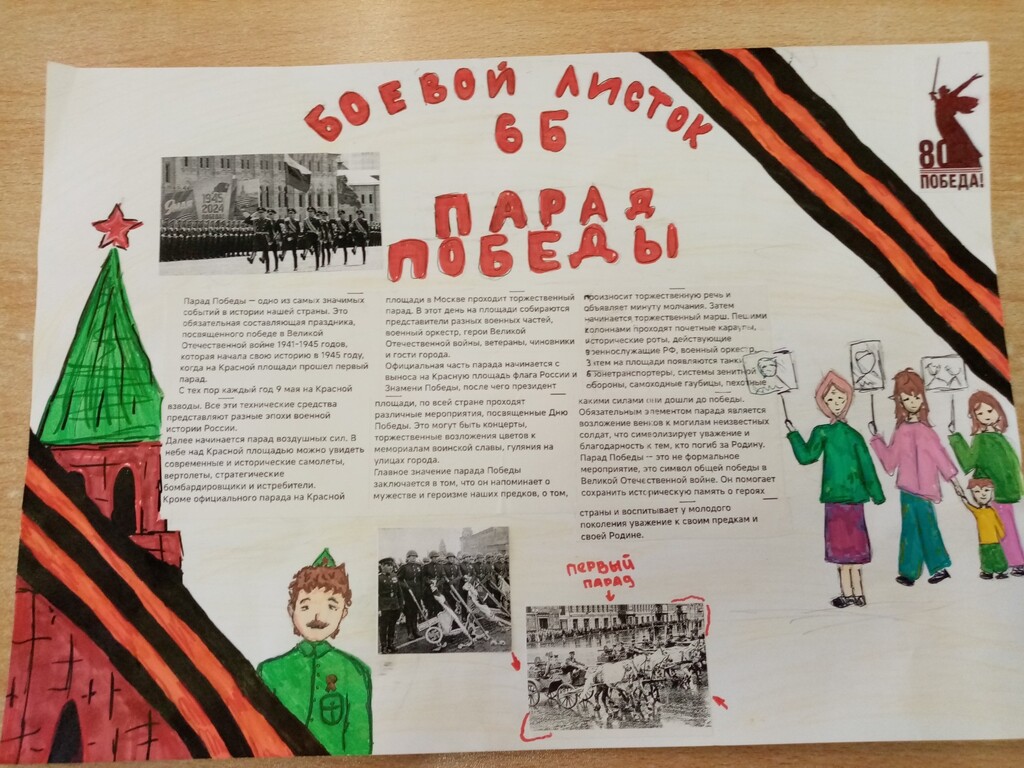 БОЕВОЙ ЛИСТОК
6Б
ПАРАД
ПОБЕДЫ
80
ПОБЕДА!
9 мая
1945
2024
Парад Победы – одно из самых значимых
событий в истории нашей страны. Это
обязательная составляющая праздника,
посвященного победе в Великой
Отечественной войне 1941-1945 годов,
которая начала свою историю в 1945 году,
когда на Красной площади прошел первый
парад.
С тех пор каждый год 9 мая на Красной
площади в Москве проходит торжественный
парад. В этот день на площади собираются
представители разных военных частей,
военный оркестр, герои Великой
Отечественной войны, ветераны, чиновники
и гости города.
Официальная часть парада начинается с
выноса на Красную площадь флага России и
Знамени Победы, после чего президент
произносит торжественную речь и
объявляет минуту молчания. Затем
начинается торжественный марш. Пешими
колоннами проходят почетные караулы,
исторические роты, действующие
военнослужащие РФ, военный оркестр.
Затем на площади появляются танки,
бронетранспортеры, системы зенитной
обороны, самоходные гаубицы, пехотные
взводы. Все эти технические средства
представляют разные эпохи военной
истории России.
Далее начинается парад воздушных сил. В
небе над Красной площадью можно увидеть
современные и исторические самолеты,
вертолеты, стратегические
бомбардировщики и истребители.
Кроме официального парада на Красной
площади, по всей стране проходят
различные мероприятия, посвященные Дню
Победы. Это могут быть концерты,
торжественные возложения цветов к
мемориалам воинской славы, гуляния на
улицах города.
Главное значение парада Победы
заключается в том, что он напоминает о
мужестве и героизме наших предков, о том,
какими силами они дошли до победы.
Обязательным элементом парада является
возложение венков к могилам неизвестных
солдат, что символизирует уважение и
благодарность к тем, кто погиб за Родину.
Парад Победы – это не формальное
мероприятие, это символ общей победы в
Великой Отечественной войне. Он помогает
сохранить историческую память о героях
страны и воспитывает у молодого
поколения уважение к своим предкам и
своей Родине.
ПЕРВЫЙ
ПАРАД